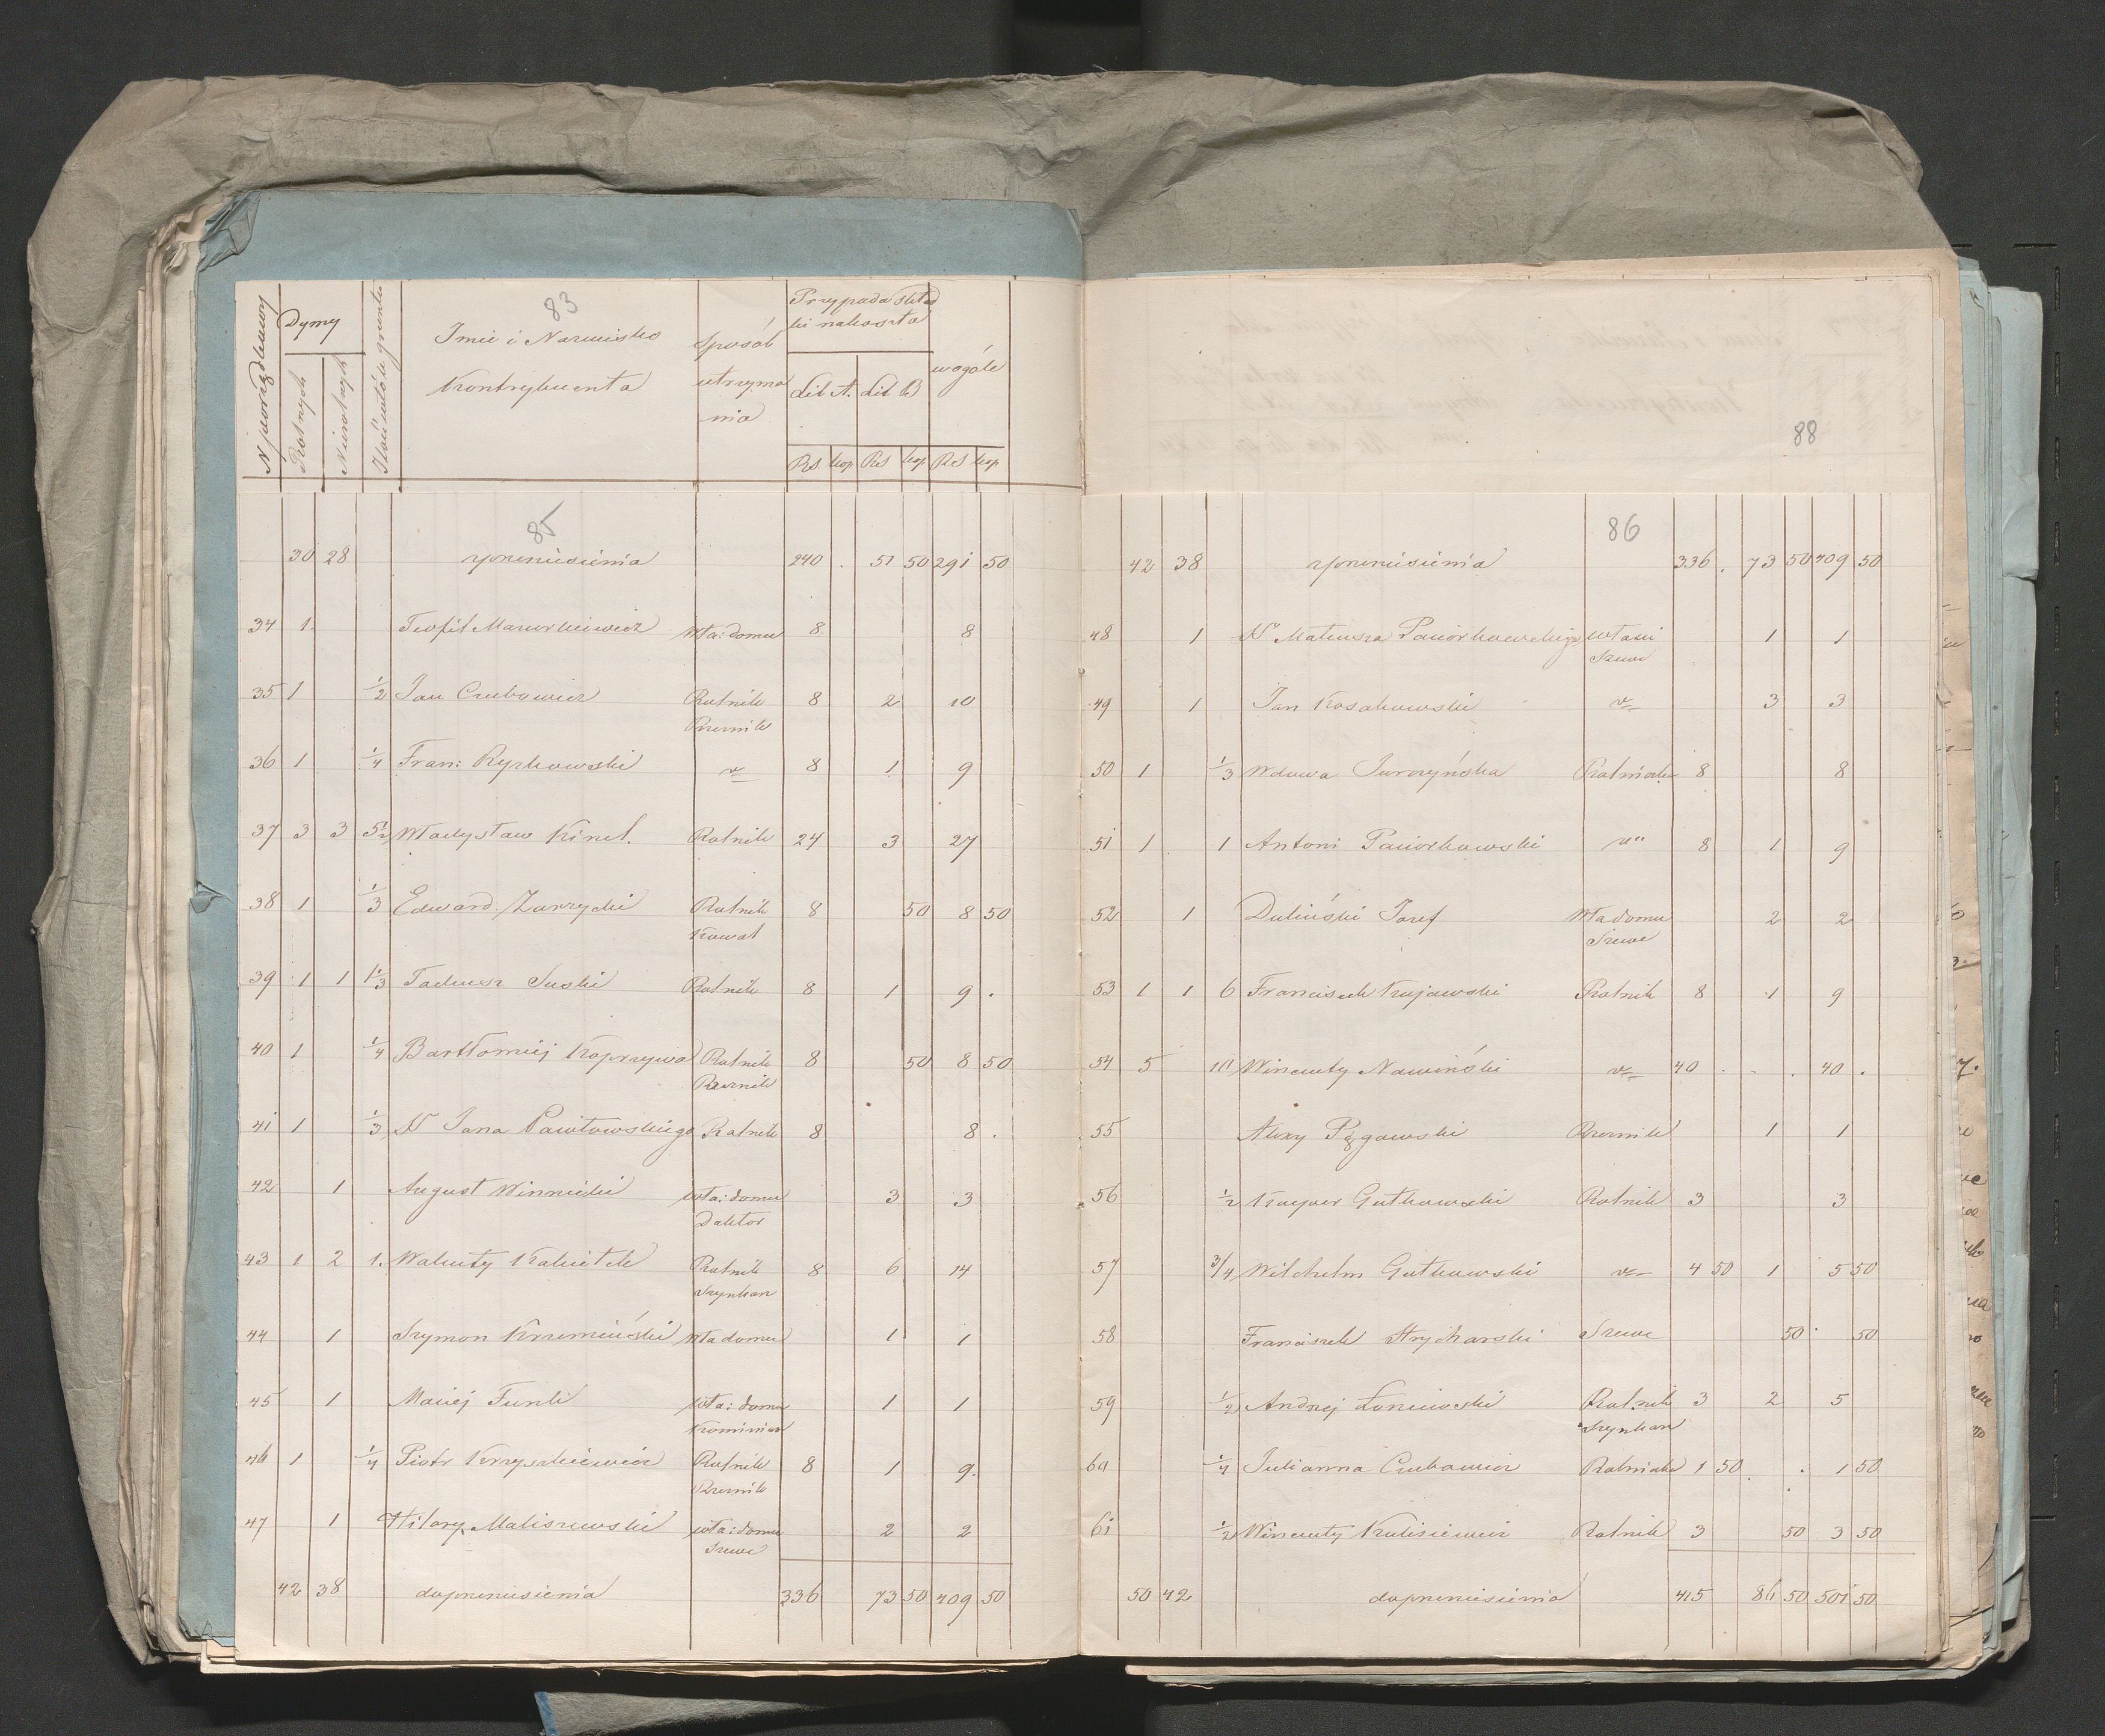 83
N porządkowy
Dymy
Rolnych
Nierolnych
Ilość włók gruntu
Imie i Nazwisko
Kontrybuenta
Sposób
utrzyma
nia
Przypada skład
ki na koszta
Lit A. Lit B
wogóle
Rs kop Rs kop Rs kop
88
85
30 28 zprzeniesienia 240 . 51 50 291 50
34 1. Teofil Mazurkiewicz wła: domu 8. 8
35 1 1/2 Jan Czubowicz Rolnik 8 2 10
Rzeznik
36 1 1/4 Fran: Ryszkowski v 8 1 9
37 3 3 5 1/2 Władysław Kinel. Rolnik 24 3 27
38 1 1/3 Edward Zarzycki Rolnik 8 50 8 50
Kowal
39 1 1 1 1/3 Tadeusz Suski Rolnik 8 1 9 .
40 1 1/4 Bartłomiej Koprzywa Rolnik 8 50 8 50
Rzeznik
41 1 1/3 N Jana Pawłowskiego Rolnik 8 8 .
42 1 August Winnicki wła: domu 3 3
Doktor
43 1 2 1. Walenty Kalwitek Rolnik 8 6 14
Szynkarz
44 1 Szymon Krzemiński wła domu 1 1
45 1 Maciej Funk wła: domu 1 1
Kominiarz
46 1 1/4 Piotr Krzyszkiewicz Rolnik 8 1 9.
Rzeznik
47 1 Hilary Maliszewski wła: domu 2 2
Szewc
42 38 doprzeniesienia 336 73 50 409 50
86
42 38 zprzeniesienia 336 . 73 50 409 50
48 1 N Mateusza Paciorkowskiego właśi 1 1
Szewc
49 1 Jan Kosakowski v 3 3
50 1 1/3 Wdowa Jurczyńska Rolniczka 8 8
51 1 1 Antoni Paciorkowski v" 8 1 9
52 1 Duliński Józef Wła domu 2 2
Szewc
53 1 1 6 Franciszek Kujawski Rolnik 8 1 9
54 5 10 Wincenty Nawiński v 40 . . . 40 .
55 Alexy Pągowski Rzeznik 1 1
56 1/2 Kacper Gutkowski Rolnik 3 3
57 3/4 Wilchelm Gutkowski v 4 50 1 5 50
58 Franciszek Strycharski Szewc 50 50
59 1/2 Andrzej Łoniewski Rolnik 3 2 5
Szynkarz
60 1/4 Julianna Czubowicz Rolniczka 1 50 . . 1 50
61 1/2 Wincenty Kulisiewicz Rolnik 3 50 3 50
50 42 doprzeniesienia 415 86 50 501 50